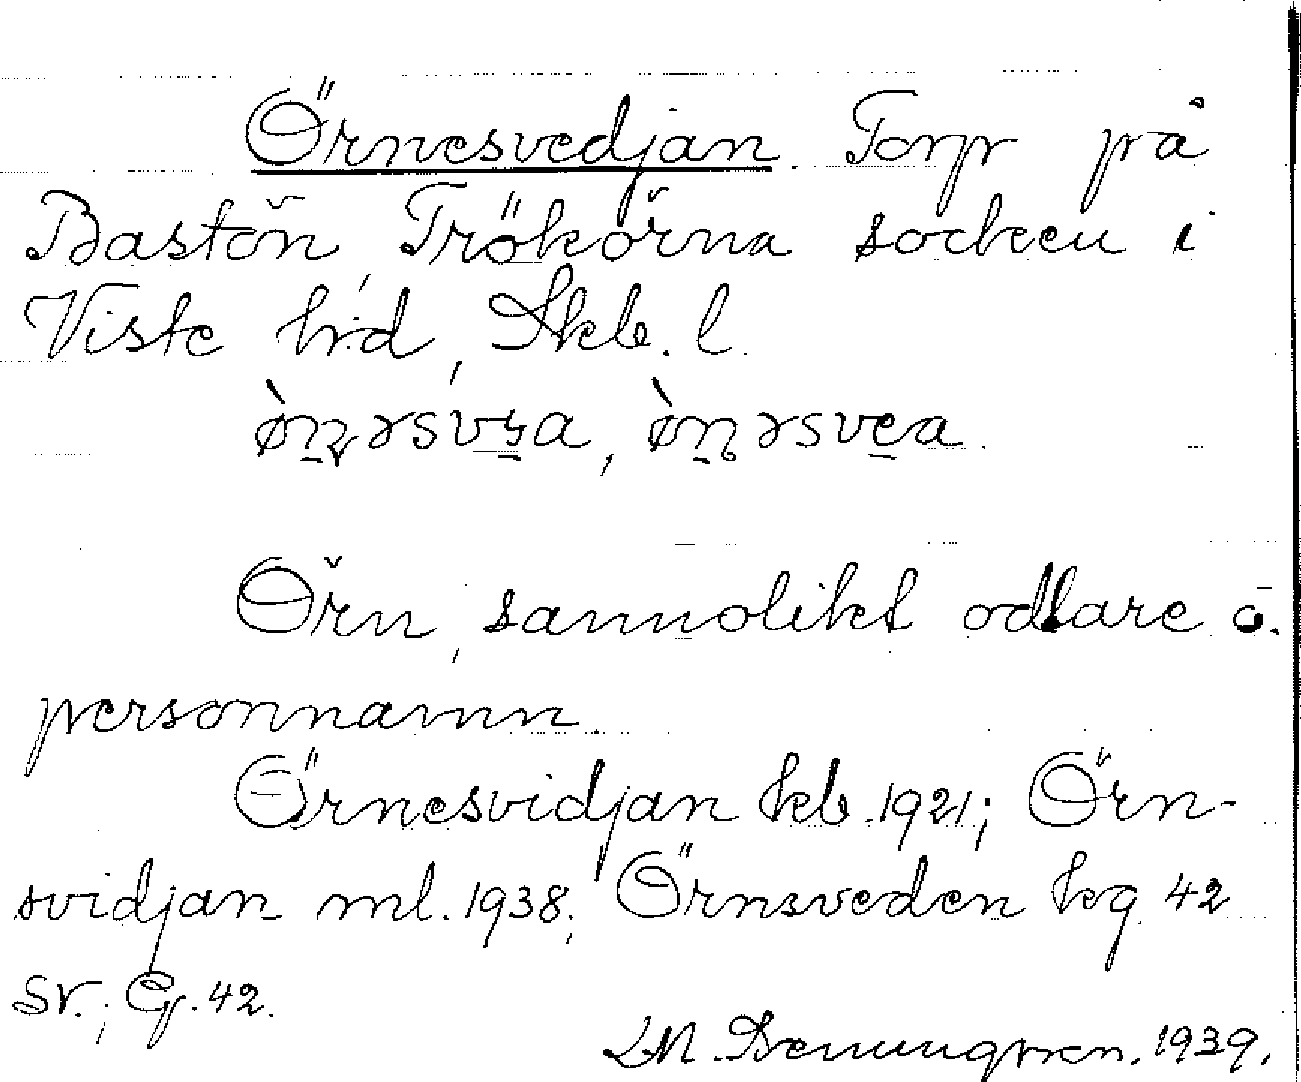 Örnesvedjan. Torp på
Bastön, Trökörna socken i
Viste hd, Skb. l.
Örn, sannolikt odlare ö.
personnamn.
Örnesvidjan kb. 1921; Örn-
svidjan ml. 1938; Örnsveden kg 42
sv.; G. 42.
1939.